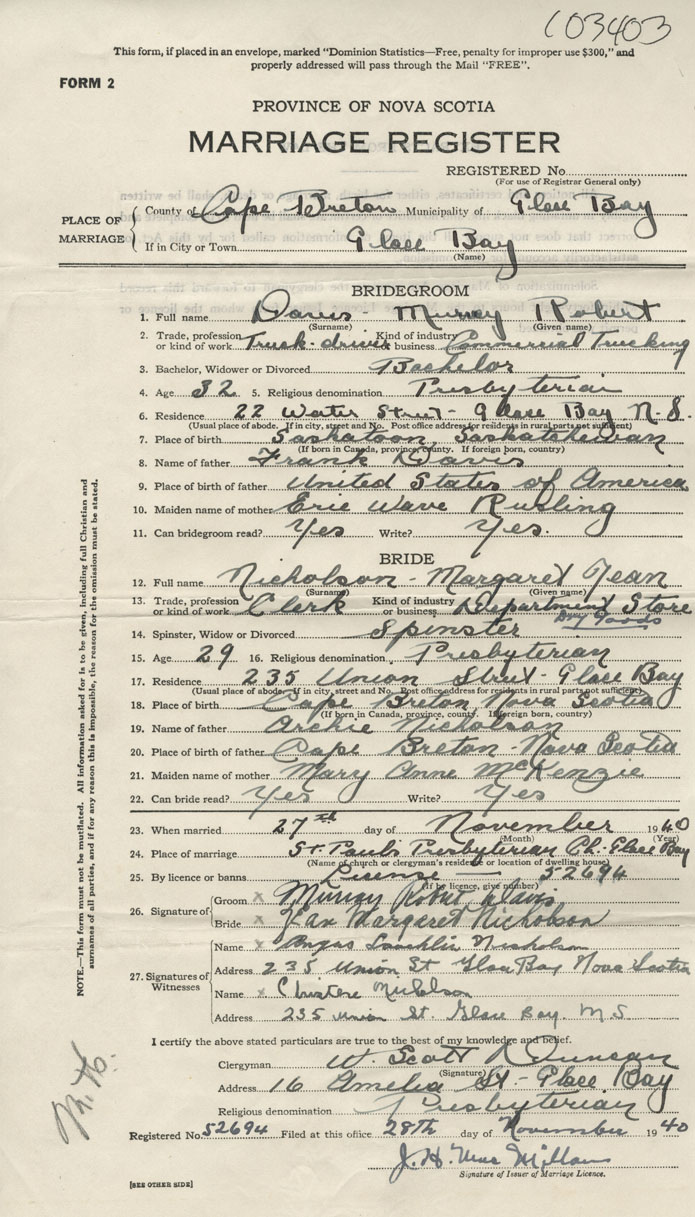 103403
This form, if placed in an envelope, marked "Dominion Statistics—Free, penalty for improper use $300," and
properly addressed will pass through the Mail "FREE".
FORM 2
PROVINCE OF NOVA SCOTIA
MARRIAGE REGISTER
REGISTERED No.
(For use of Registrar General only)
PLACE OF MARRIAGE
County of Cape Breton Municipality of Glace Bay
If in City or Town Glace Bay
(Name)
BRIDEGROOM
1. Full name Davis - Murray Robert
(Surname) (Given name)
2. Trade, profession or kind of work Truck-driver Kind of industry or business Commercial Trucking
3. Bachelor, Widower or Divorced Bachelor
4. Age 32 5. Religious denomination Presbyterian
6. Residence 22 Water Street - Glace Bay N.S.
(Usual place of abode. If in city, street and No. Post office address for residents in rural parts not sufficient)
7. Place of birth Saskatoon, Saskatchewan
(If born in Canada, province, county. If foreign born, country)
8. Name of father Frank Davis
9. Place of birth of father United States of America
10. Maiden name of mother Erie Wave
11. Can bridegroom read? Yes Write? Yes.
BRIDE
12. Full name Nicholson - Margaret Jean
(Surname) (Given name)
13. Trade, profession or kind of work Clerk Kind of industry or business Department Store
Dry Goods
14. Spinster, Widow or Divorced Spinster
15. Age 29 16. Religious denomination Presbyterian
17. Residence 235 Union Street - Glace Bay
(Usual place of abode. If in city, street and No. Post office address for residents in rural parts not sufficient)
18. Place of birth Cape Breton Nova Scotia
(If born in Canada, province, county. If foreign born, country)
19. Name of father Archie Nicholson
20. Place of birth of father Cape Breton - Nova Scotia
21. Maiden name of mother Mary Anne McKenzie
22. Can bride read? Yes Write? Yes
23. When married 27th day of November 1940
(Month) (Year)
24. Place of marriage St. Paul's Presbyterian Ch. Glace Bay
(Name of church or clergyman's residence or location of dwelling house)
25. By licence or banns License — 52694
(If by licence, give number)
26. Signature of
Groom x Murray Robert Davis
Bride x Margaret Nicholson
27. Signatures of Witnesses
Name x Lauchlin Nicholson
Address 235 Union St Glace Bay Nova Scotia
Name x
Address 235 Union St. Glace Bay. N S
I certify the above stated particulars are to the best of my knowledge and belief.
Clergyman W. Scott Duncan
(Signature)
Address 16 Amelia St - Glace Bay
Religious denomination Presbyterian
Registered No. 52694 Filed at this office 28th day of November 1940
J. H. MacMillan
Signature of Issuer of Marriage Licence.
[SEE OTHER SIDE]
NOTE.—This form must not be mutilated. All information asked for is to be given, including full Christian and
surnames of all parties, and if for any reason this is impossible, the reason for the omission must be stated.